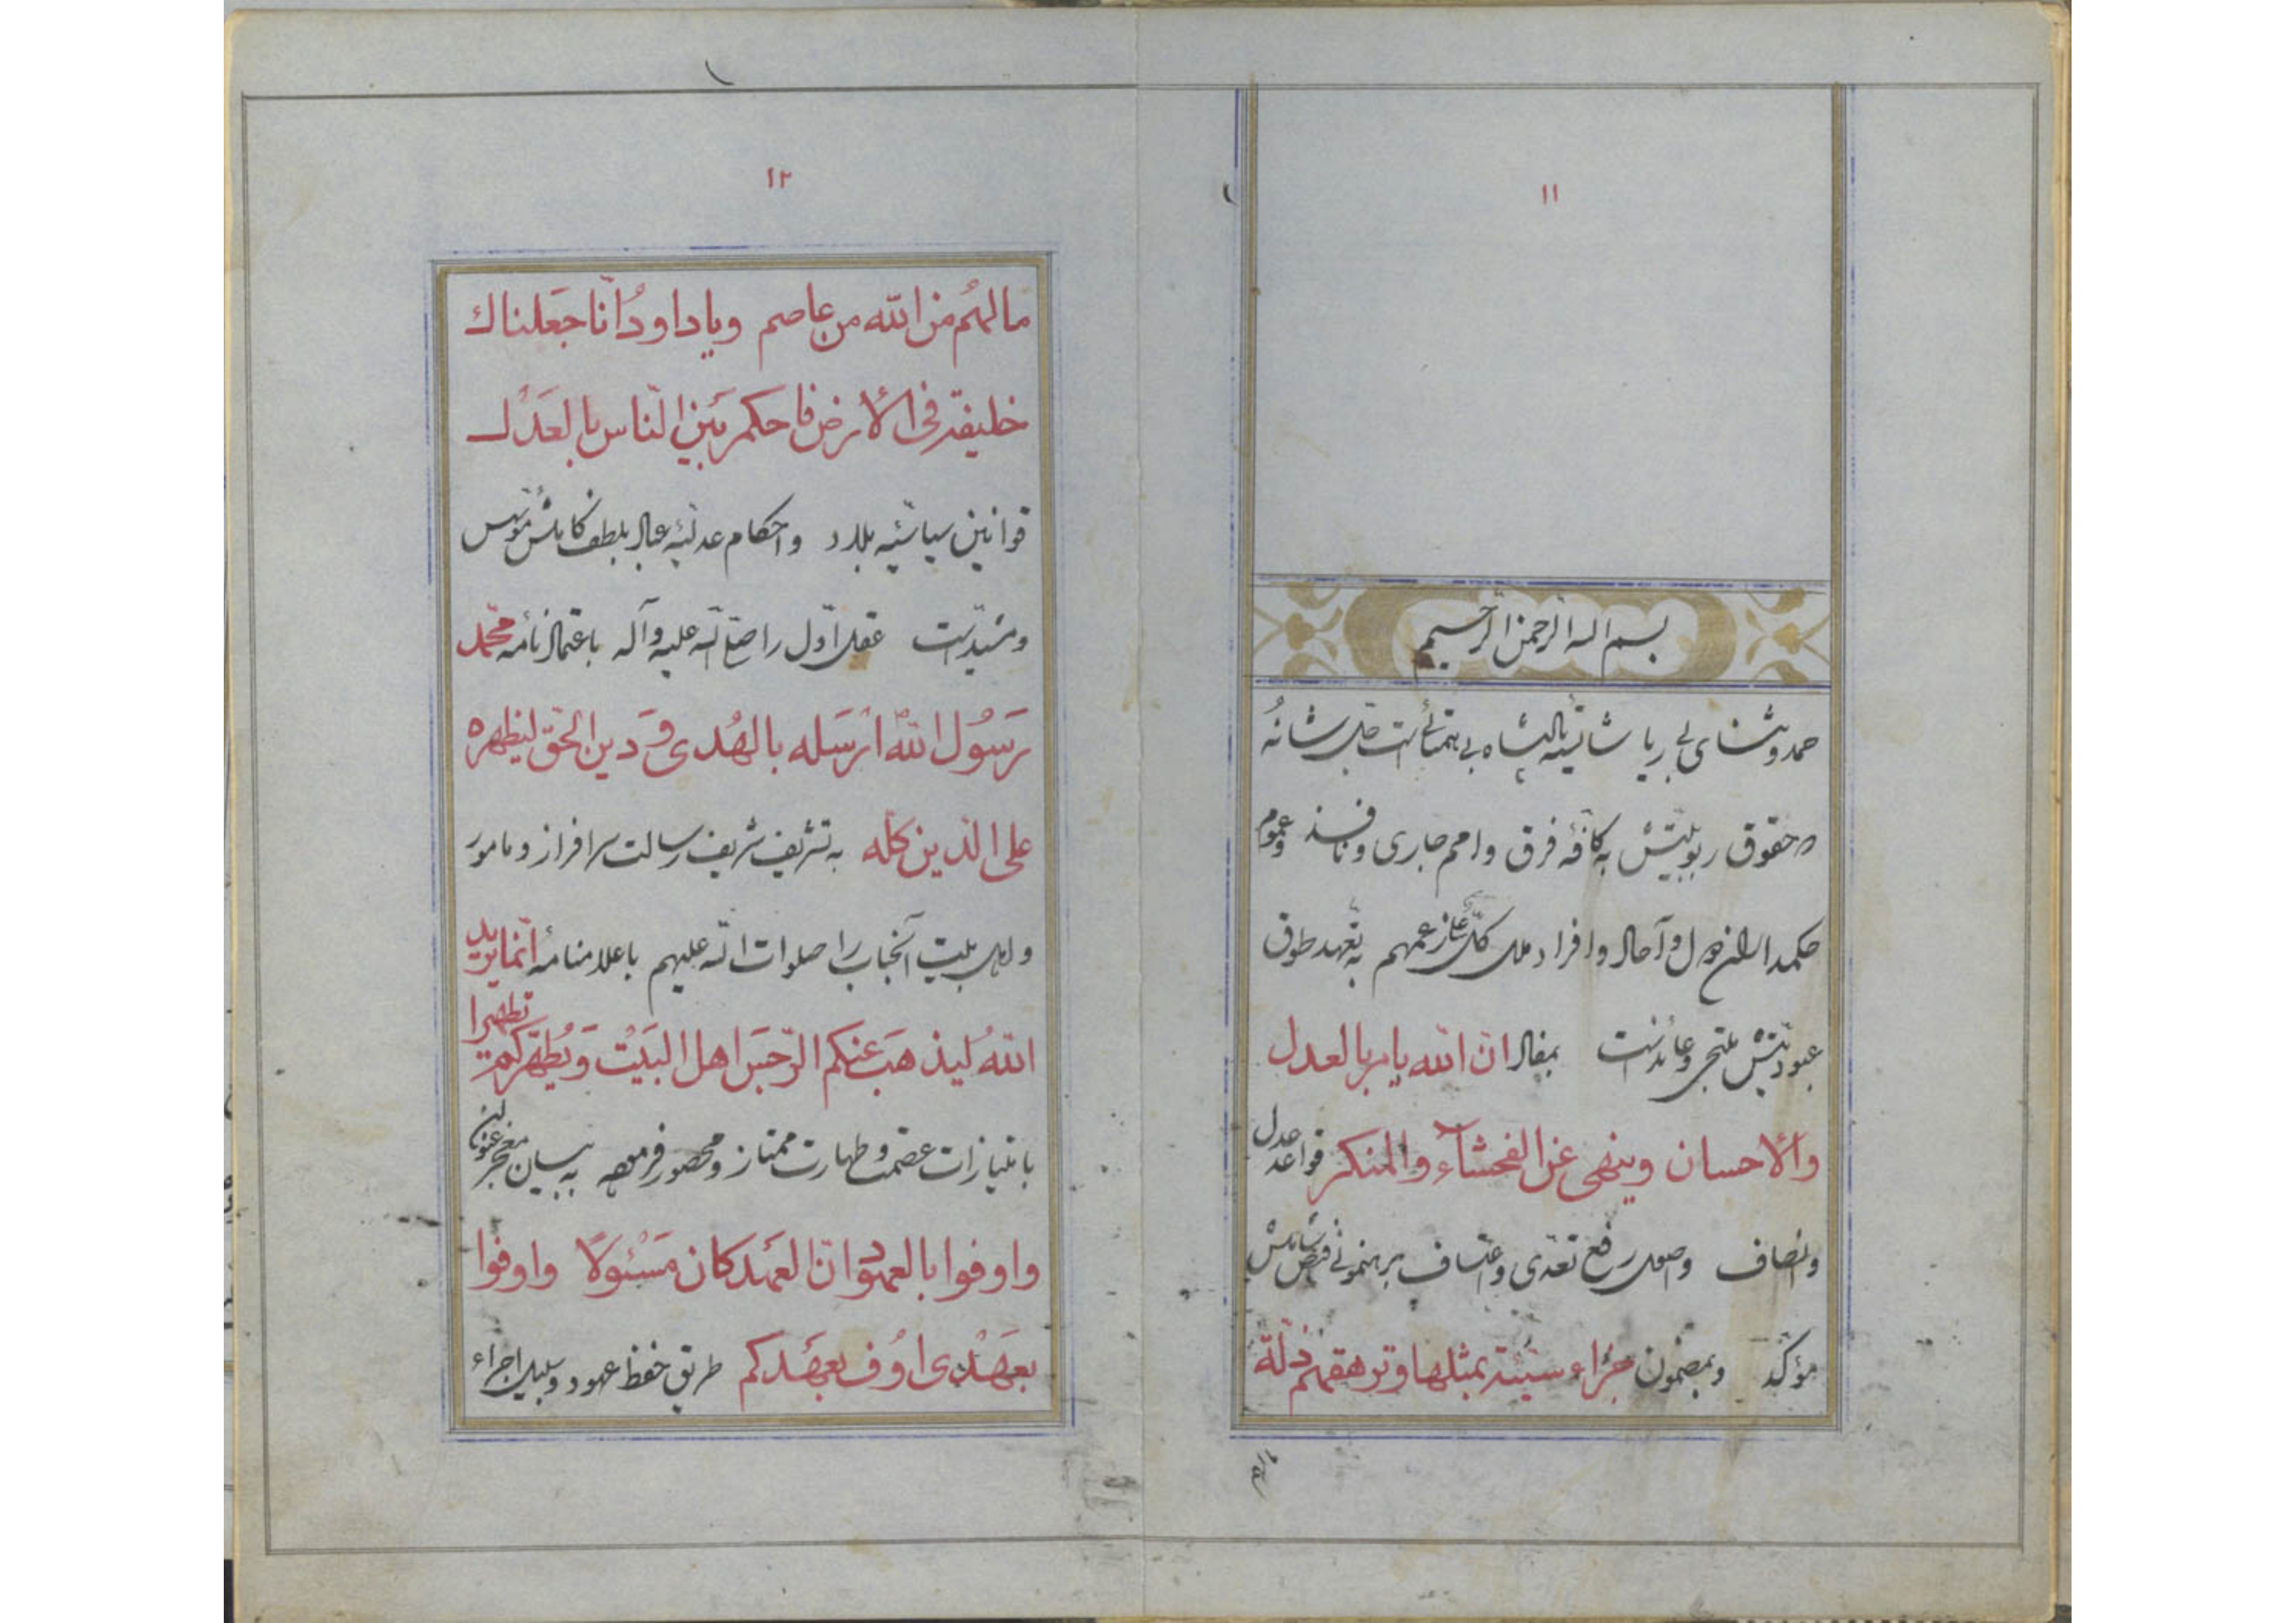 ۱۱
بسم الله الرحمن الرحیم
حمد و ثنای بی ریا شایسته پادشاه بی همتائیست جل شانهُ
که حقوق ربوبیتش به کافّه فرق و امم جاری و نافذ و عموم
آحاد و افراد ملل کلّ عن زعمهم به تعهد طوق
عبودیتش ملتجی و عائدست بمفاد انّ الله یامر بالعدل
والاحسان وینهی عن الفحشآء والمنکر قواعد عدل
و انصاف و اصول رفع تعدّی و اعتساف برهنمونی
مؤکّد و بمضمون جزاء سیّئة بمثلها وترهقهم ذلّة
مالهم
۱۲
مالهُم من الله من عاصم ویاداودُ انّا جَعلناک
خلیفة فی الأرض فاحکم بَین النّاس بالعَدْل
قوانین سیاسیّه بلاد و احکام عدلیّه عباد بلطف کاملش مؤسّس
و مشیّدست عقل اوّل را صلی الله علیه وآله باعتماد نامهٔ محمّد
رَسُول اللهُ ارْسَله بالهُدی وَ دین الحقّ لیظهره
علی الدّین کلّه به تشریف شریف رسالت سرافراز و مامور
و اهل بیت آنجناب را صلوات الله علیهم باعلامنامهٔ انّما یرید
اللهُ لیذهبَ عنکم الرّجسَ اهل البَیْت وَیُطهّرکم تطهیرا
بامتیازات عصمت و طهارت ممتاز و محصور فرموده به بیان معجز عنوان
واوفوا بالعهود انّ العَهد کان مَسْئولًا واوفوا
بعَهْدی اُوف بعَهْدکم طریق حفظ عهود و سبیل اجراء